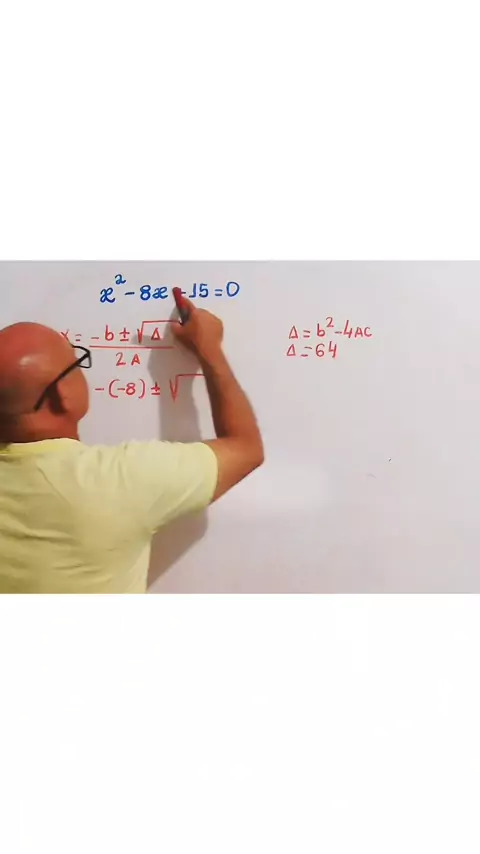 x² - 8x - 15 = 0
x = -b ± √Δ / 2A
-(-8) ± √
Δ = b² - 4AC
Δ = 64